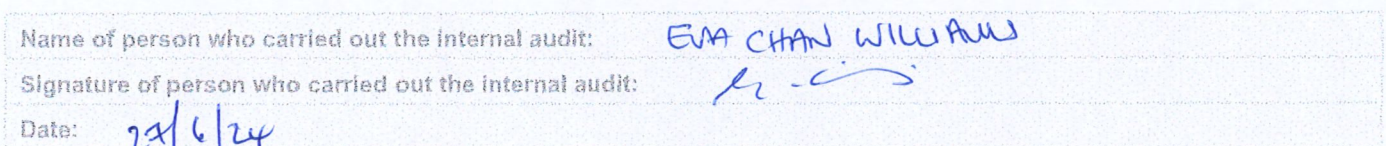 Name of person who carried out the internal audit: EVA CHAN WILLIAMS
Signature of person who carried out the internal audit:
Date: 27/6/24